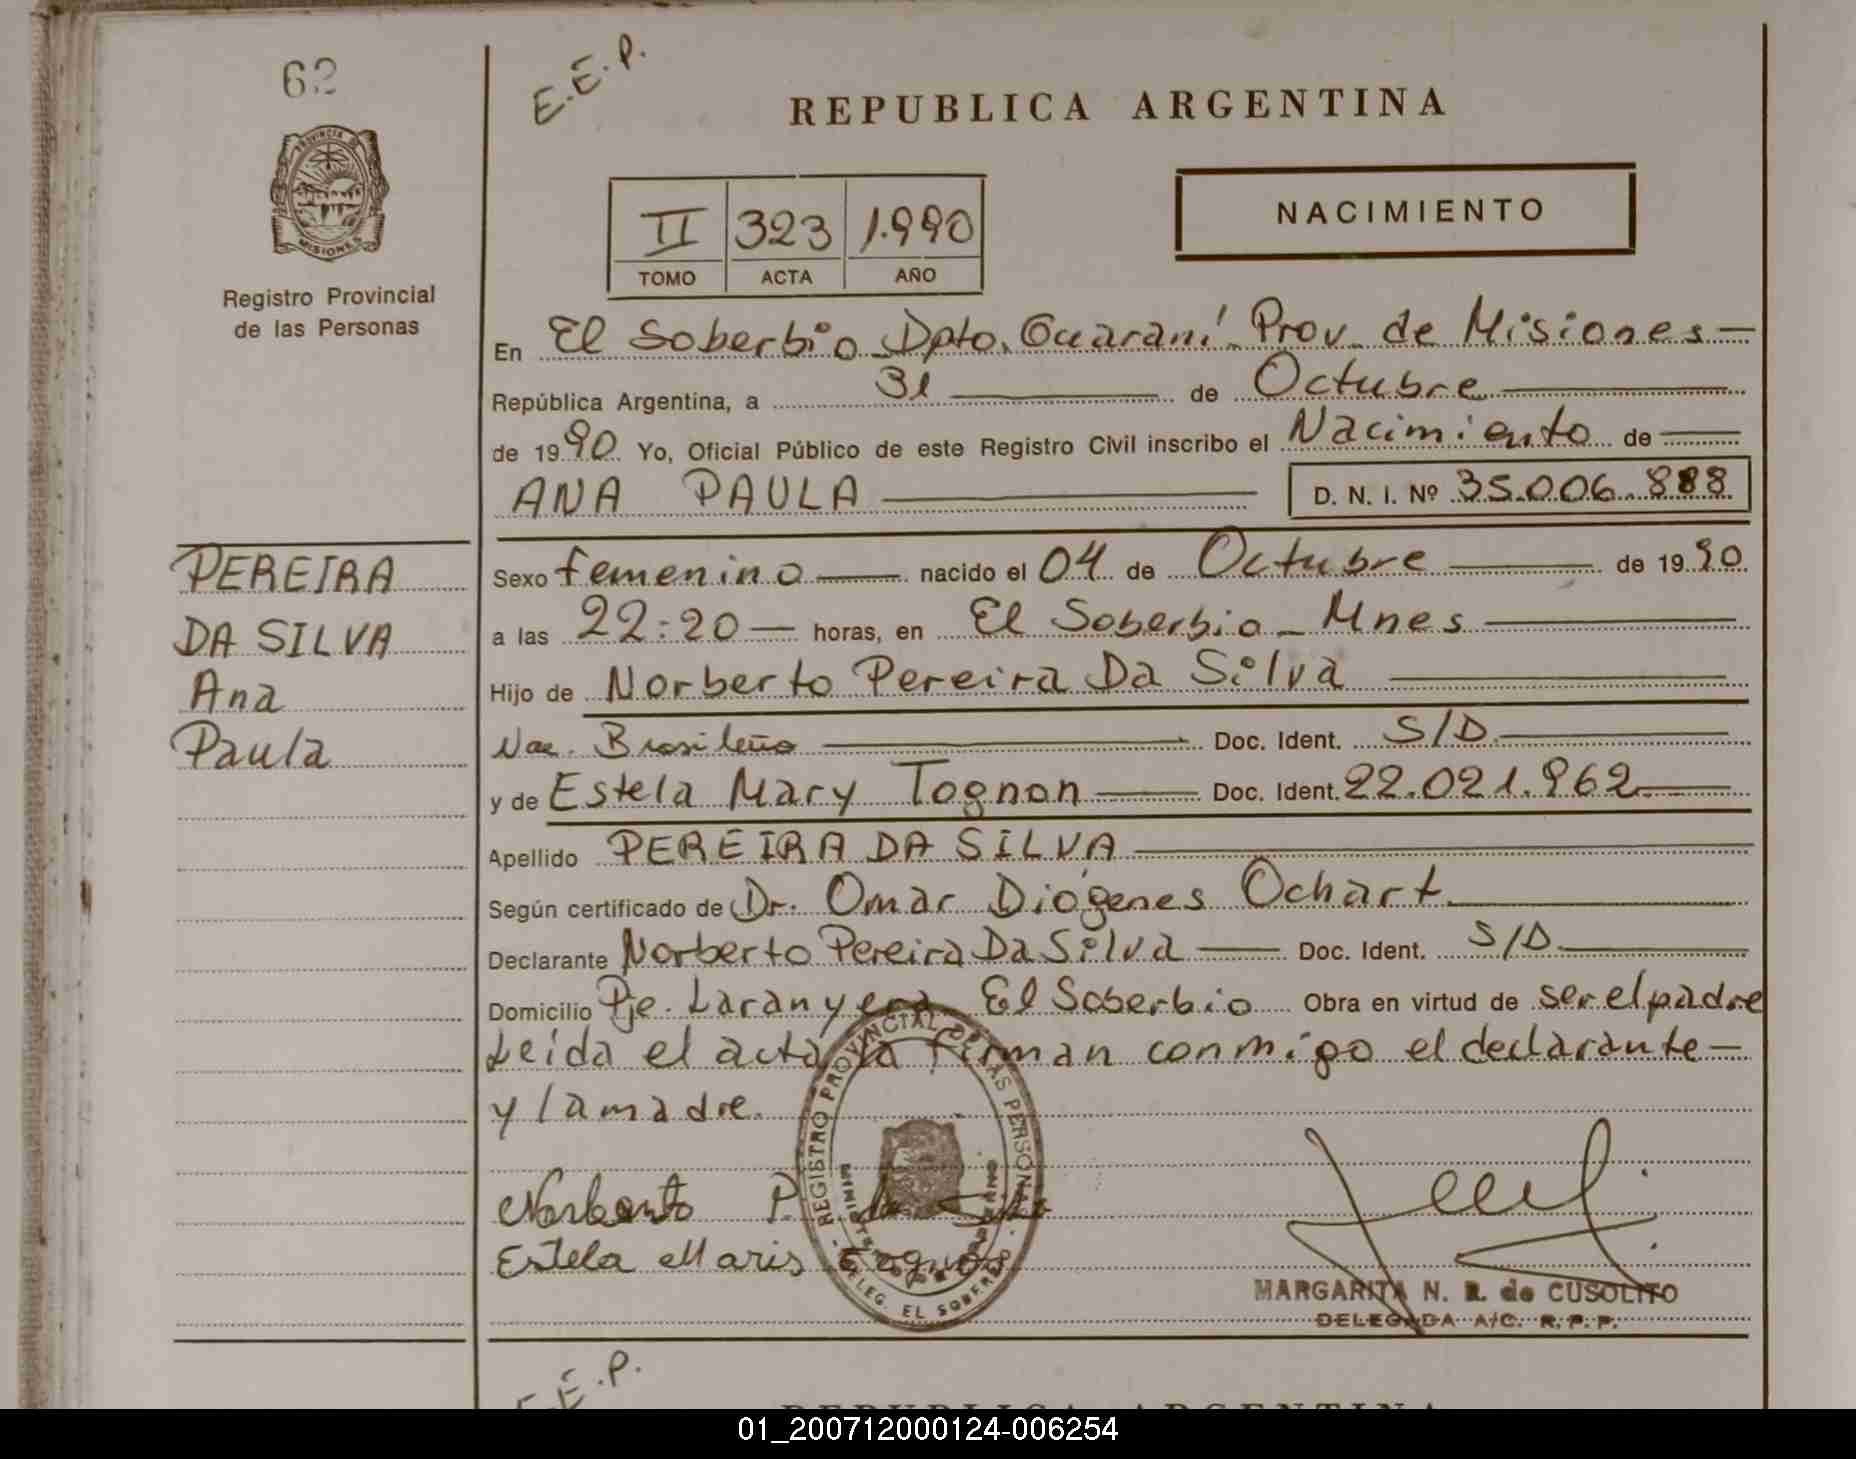 62
E.E.P.
REPUBLICA ARGENTINA
PROVINCIA DE
MISIONES
Registro Provincial
de las Personas
II 323 1.990
TOMO ACTA AÑO
NACIMIENTO
En El Soberbio Dpto. Guaraní Prov. de Misiones
República Argentina, a 31 de Octubre
de 1990 Yo, Oficial Público de este Registro Civil inscribo el Nacimiento de
ANA PAULA D. N. I. Nº 35.006.888
PEREIRA
DA SILVA
Ana
Paula
Sexo femenino nacido el 04 de Octubre de 1990
a las 22:20 horas, en El Soberbio - Mnes
Hijo de Norberto Pereira Da Silva
Nac. Brasileño Doc. Ident. S/D
y de Estela Mary Tognon Doc. Ident. 22.021.962
Apellido PEREIRA DA SILVA
Según certificado de Dr. Omar Diógenes Ochart
Declarante Norberto Pereira Da Silva Doc. Ident. S/D
Domicilio Pje. Laranyera El Soberbio Obra en virtud de ser el padre
Leída el acta la firman conmigo el declarante
y la madre.
REGISTRO PROVINCIAL DE LAS PERSONAS
MINISTERIO DE GOBIERNO
DELEG. EL SOBERBIO
Norberto P. da Silva
Estela Maris Tognon
MARGARITA N. R. de CUSOLITO
DELEGADA A/C. R. P. P.
E.E.P.
REPUBLICA ARGENTINA
01_200712000124-006254